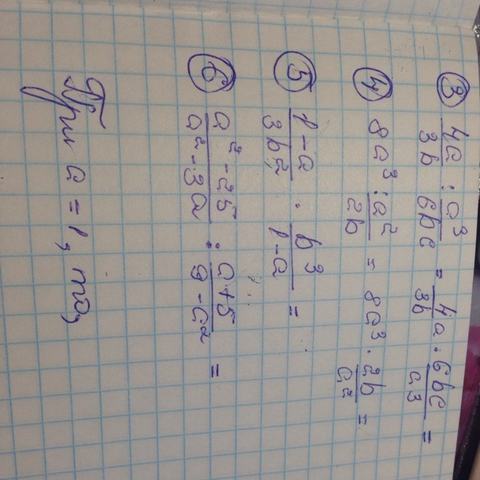 ③ 4a/3b : a³/6bc = 4a/3b · 6bc/a³ =
④ 8a³ : a²/2b = 8a³ · 2b/a² =
⑤ 1-a/3b² · b³/1-a =
⑥ a²-25/a²-3a : a+5/9-a² =
При a = 1, то,